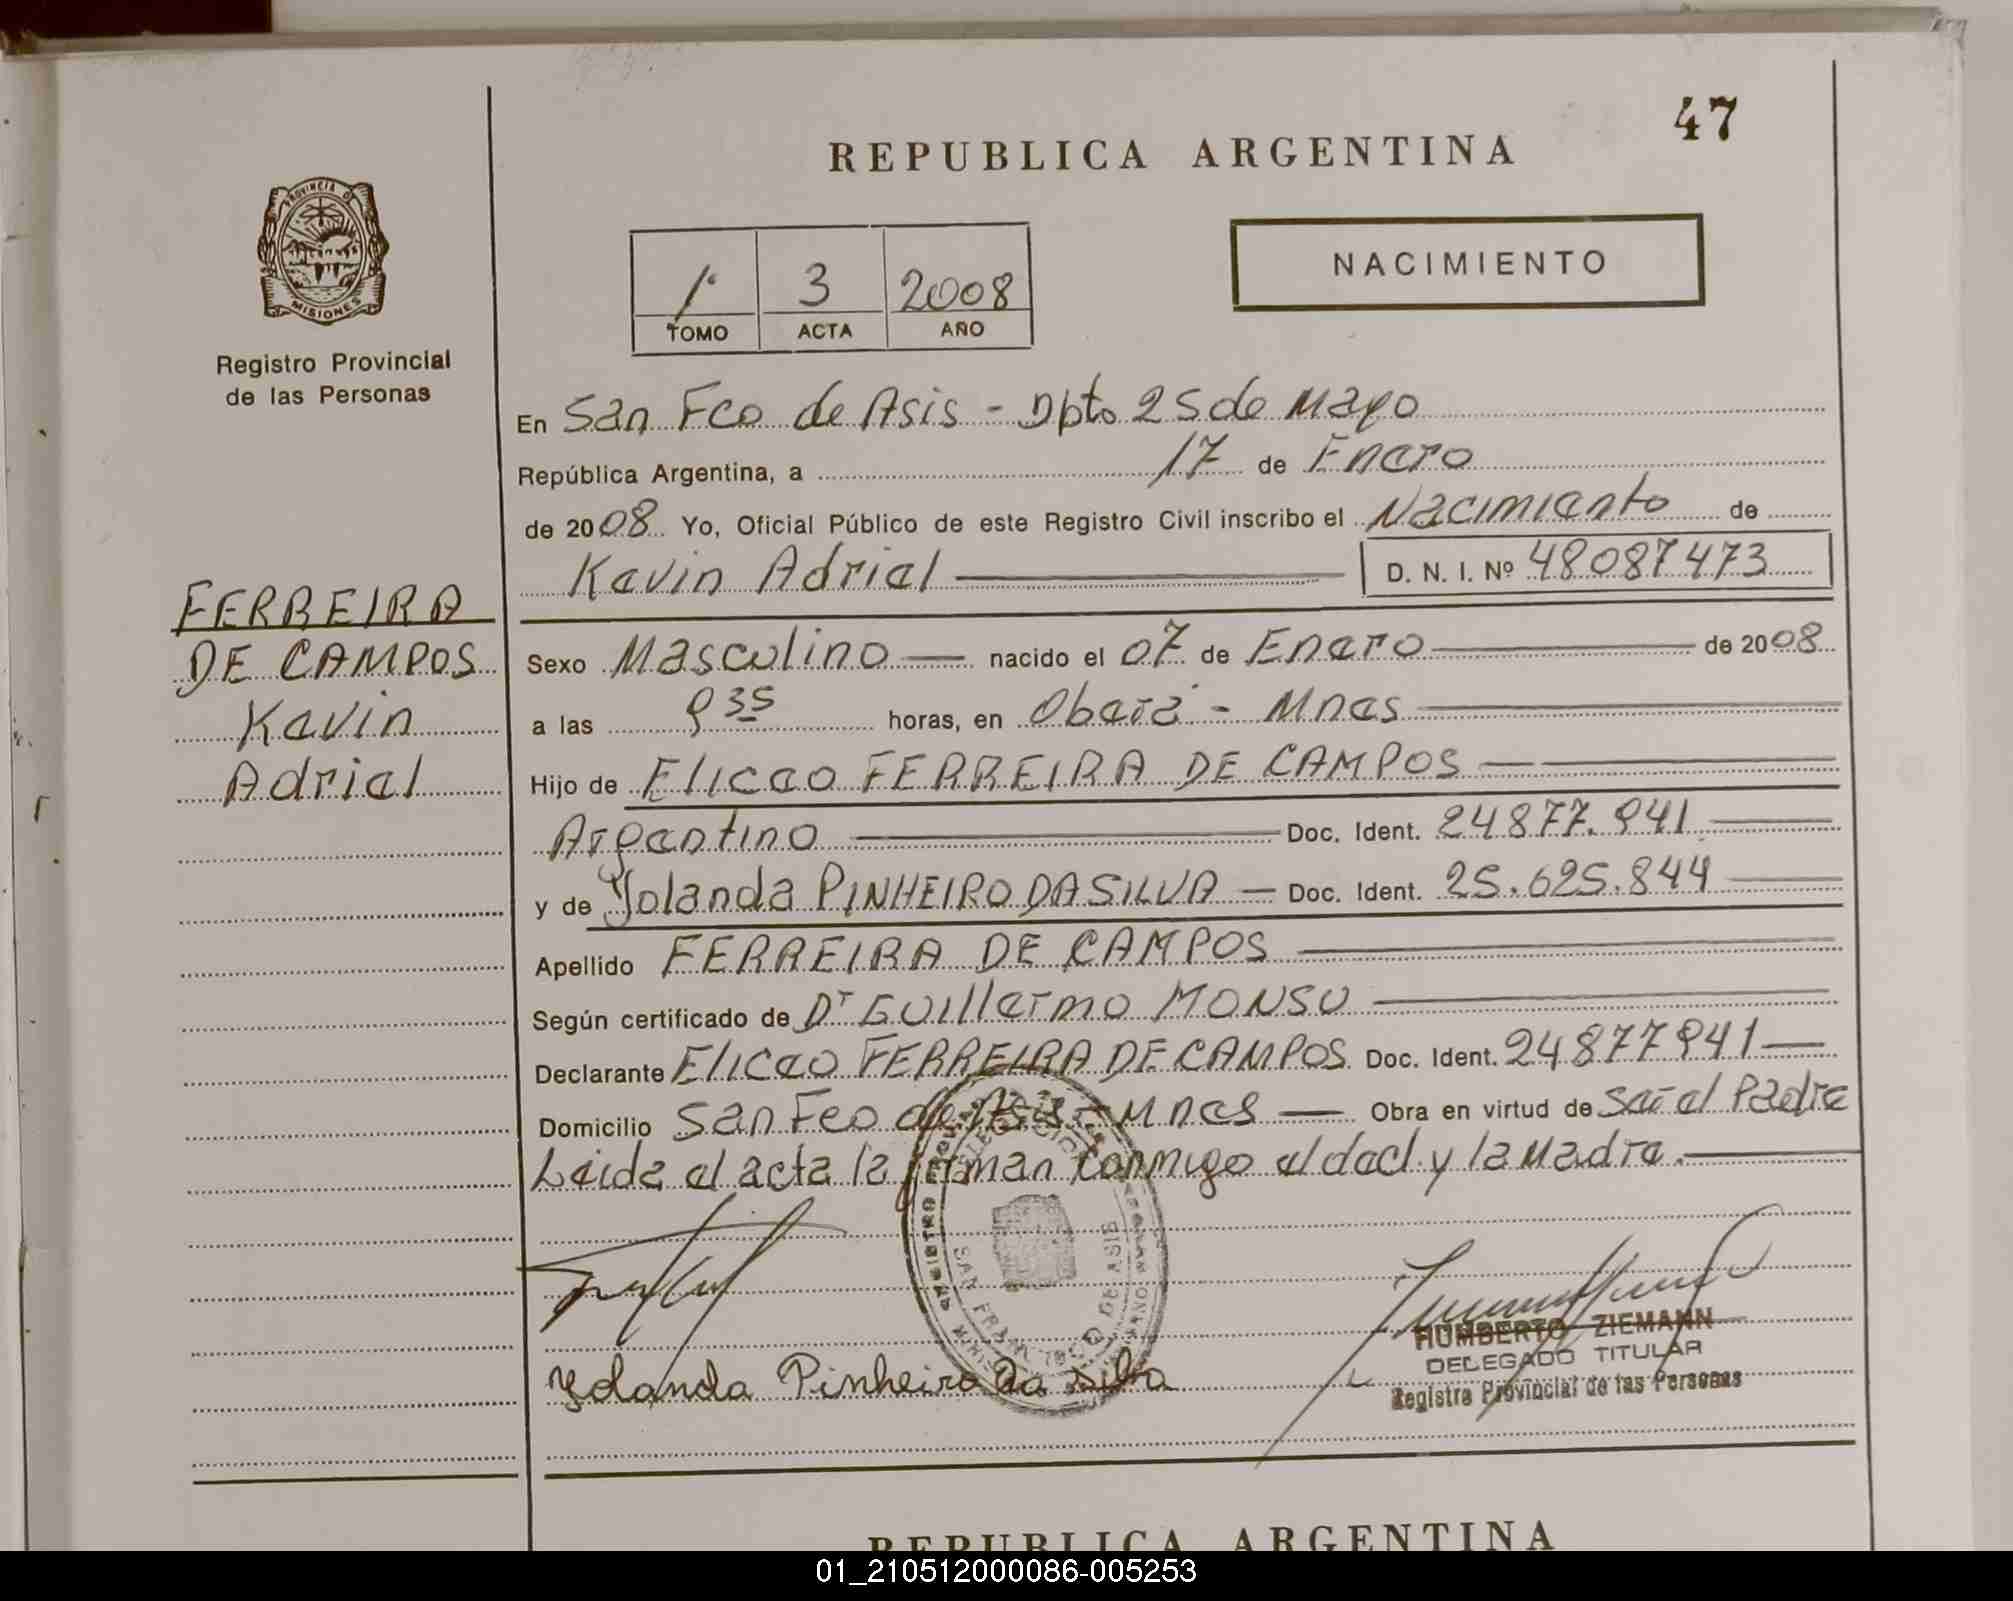 47
REPUBLICA ARGENTINA
PROVINCIA DE
MISIONES
Registro Provincial
de las Personas
NACIMIENTO
1º 3 2008
TOMO ACTA AÑO
En San Fco de Asis - Dpto 25 de Mayo
República Argentina, a 17 de Enero
de 2008 Yo, Oficial Público de este Registro Civil inscribo el Nacimiento de
Kevin Adriel D. N. I. Nº 48087473
FERREIRA
DE CAMPOS
Kevin
Adriel
Sexo Masculino nacido el 07 de Enero de 2008
a las 9 35 horas, en Oberá - Mnes
Hijo de Eliceo FERREIRA DE CAMPOS
Argentino Doc. Ident. 24877.941
y de Yolanda PINHEIRO DA SILVA Doc. Ident. 25.625.844
Apellido FERREIRA DE CAMPOS
Según certificado de Dr Guillermo MONSU
Declarante Eliceo FERREIRA DE CAMPOS Doc. Ident. 24877941
Domicilio San Fco de Asis - Mnes Obra en virtud de ser el Padre
Leida el acta la firman conmigo el decl. y la Madre.
SAN FRANCISCO DE ASIS
Yolanda Pinheiro Da Silva
HUMBERTO ZIEMANN
DELEGADO TITULAR
Registro Provincial de las Personas
REPUBLICA ARGENTINA
01_210512000086-005253